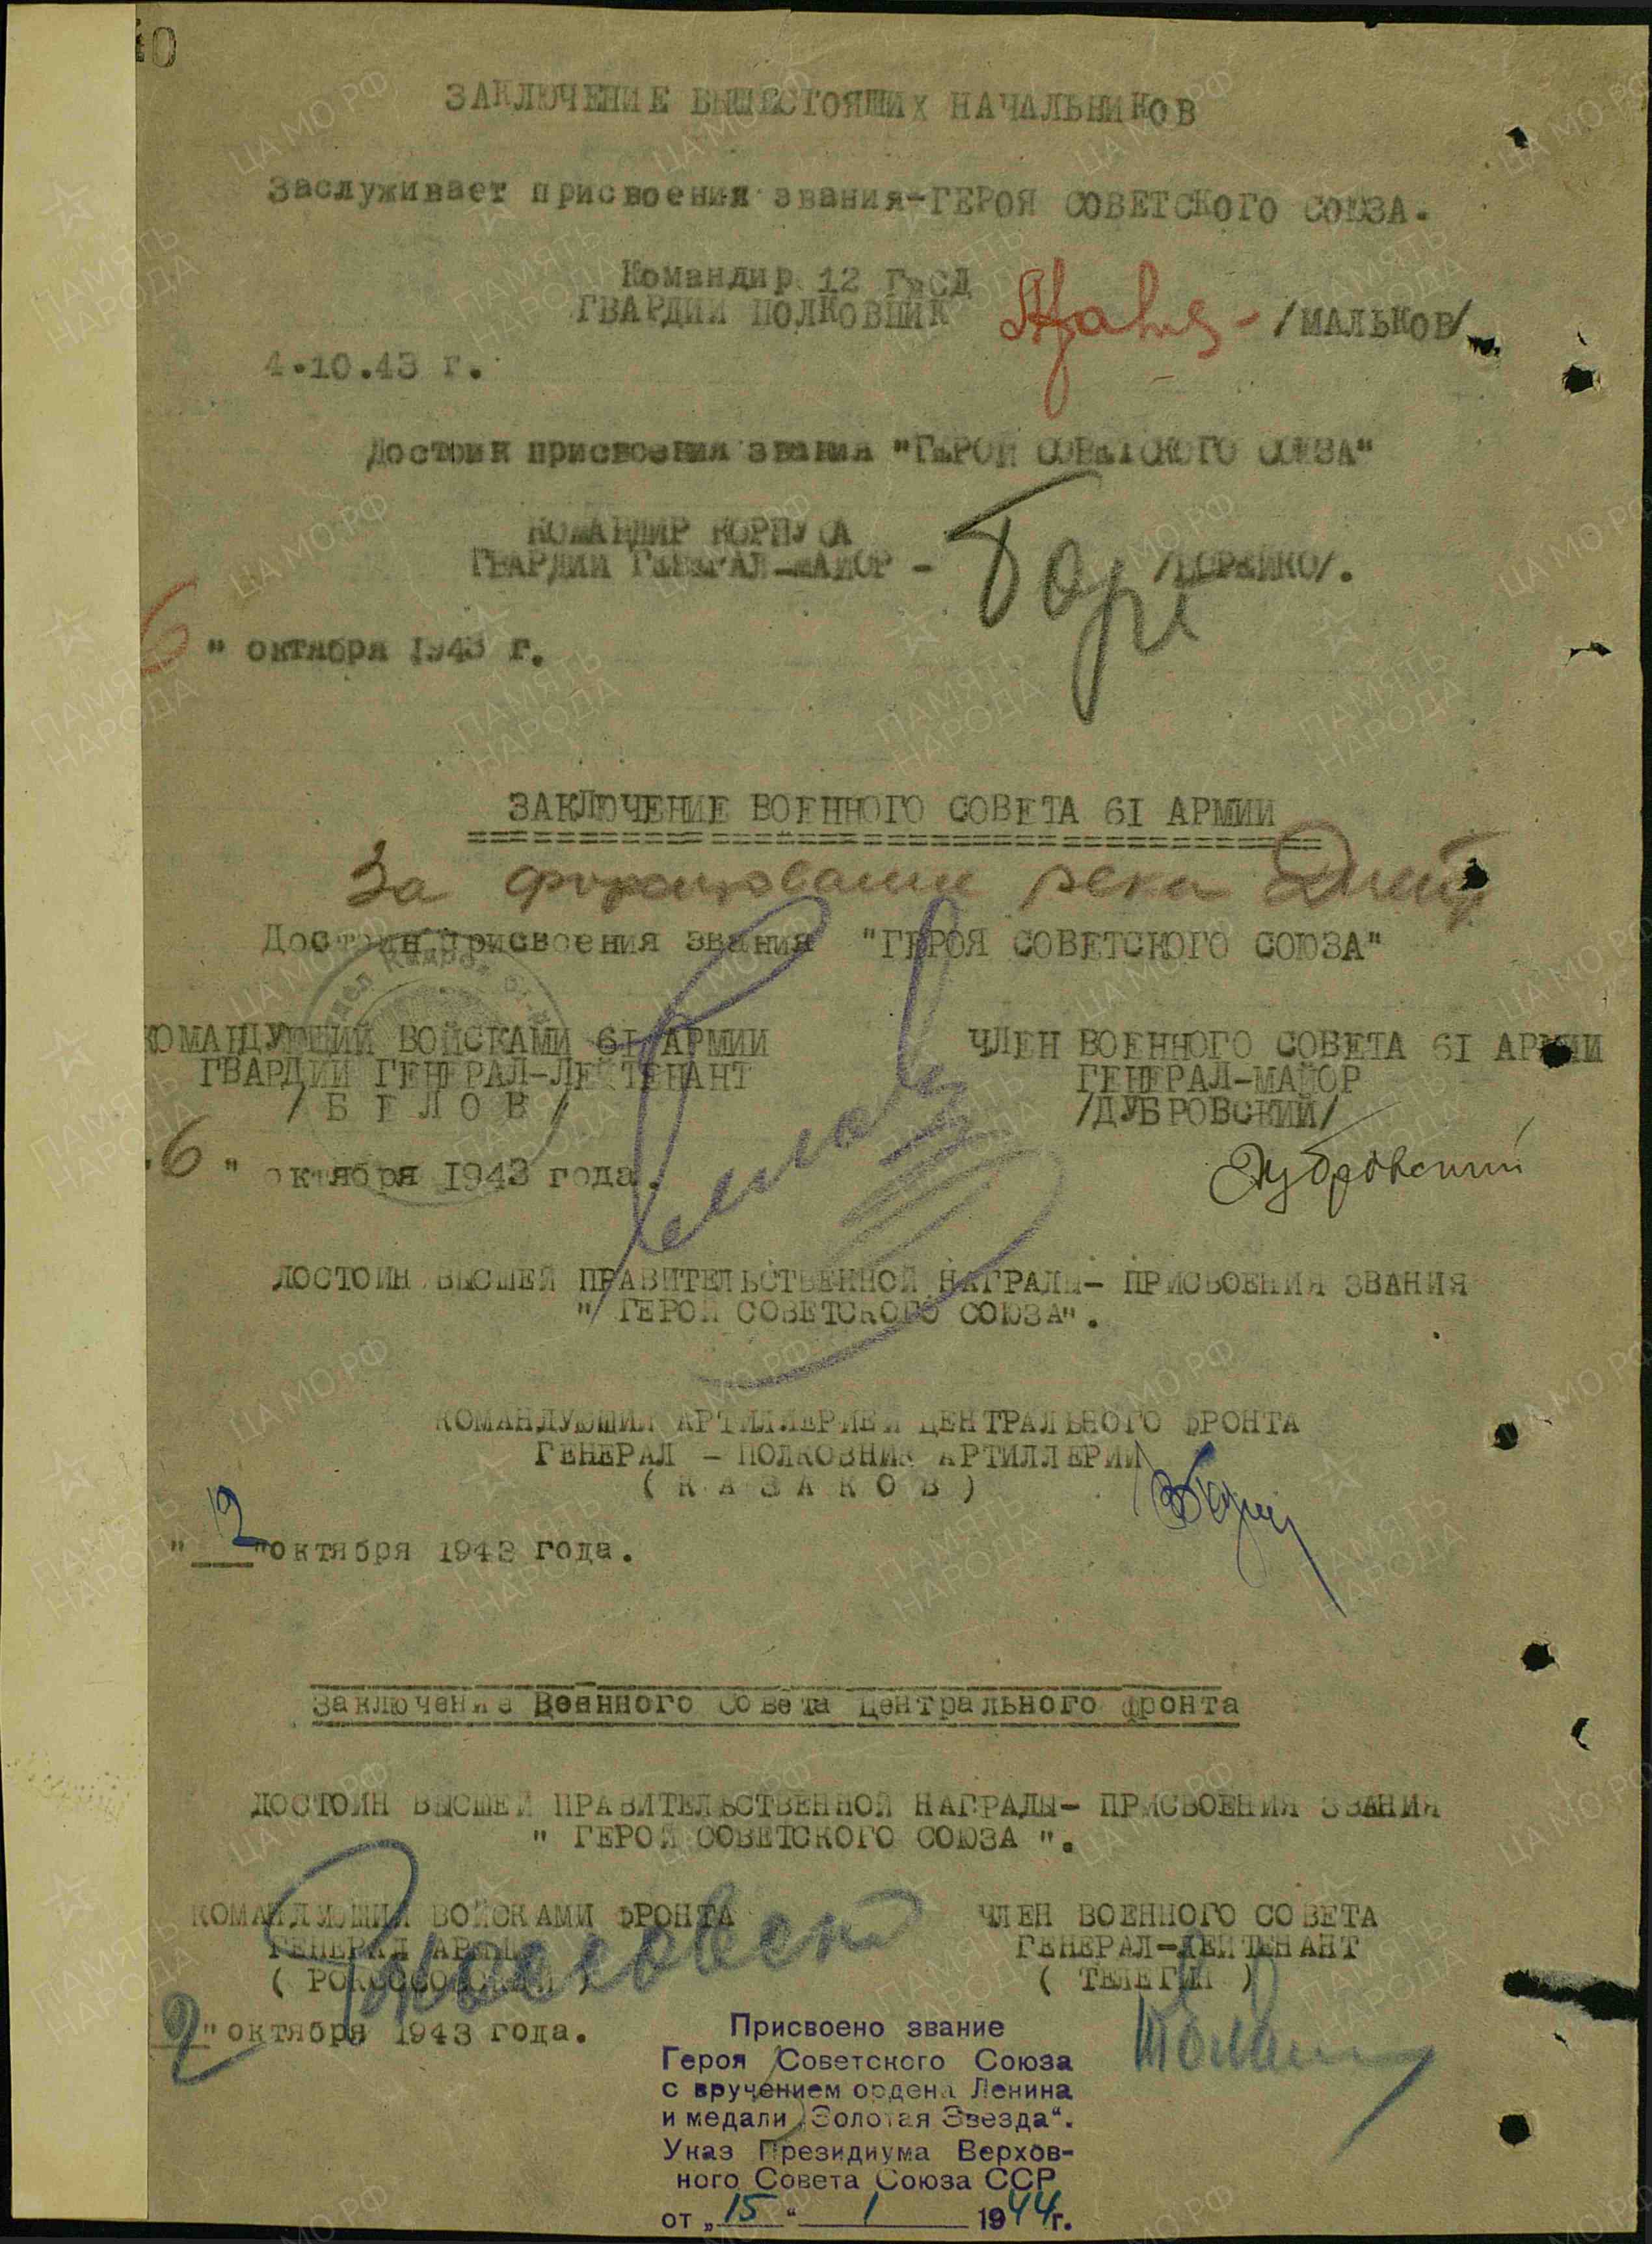 ЗАКЛЮЧЕНИЕ ВЫШЕСТОЯЩИХ НАЧАЛЬНИКОВ
Заслуживает присвоения звания-ГЕРОЯ СОВЕТСКОГО СОЮЗА.
Командир 12 ГвСД
ГВАРДИИ ПОЛКОВНИК /МАЛЬКОВ/
4.10.43 г.
Достоин присвоения звания "ГЕРОЙ СОВЕТСКОГО СОЮЗА"
КОМАНДИР КОРПУСА
ГВАРДИИ ГЕНЕРАЛ-МАЙОР - /БОРЕЙКО/.
6 " октября 1943 г.
ЗАКЛЮЧЕНИЕ ВОЕННОГО СОВЕТА 61 АРМИИ
За форсирование реки Днепр
Достоин присвоения звания "ГЕРОЯ СОВЕТСКОГО СОЮЗА"
КОМАНДУЮЩИЙ ВОЙСКАМИ 61 АРМИИ
ГВАРДИИ ГЕНЕРАЛ-ЛЕЙТЕНАНТ
/ Б Е Л О В /
6 " октября 1943 года.
ЧЛЕН ВОЕННОГО СОВЕТА 61 АРМИИ
ГЕНЕРАЛ-МАЙОР
/ДУБРОВСКИЙ/
Дубровский
ДОСТОИН ВЫСШЕЙ ПРАВИТЕЛЬСТВЕННОЙ НАГРАДЫ- ПРИСВОЕНИЯ ЗВАНИЯ
" ГЕРОЙ СОВЕТСКОГО СОЮЗА".
КОМАНДУЮЩИЙ АРТИЛЛЕРИЕЙ ЦЕНТРАЛЬНОГО ФРОНТА
ГЕНЕРАЛ - ПОЛКОВНИК АРТИЛЛЕРИИ
( К А З А К О В )
"12"октября 1943 года.
Заключение Военного Совета Центрального фронта
ДОСТОИН ВЫСШЕЙ ПРАВИТЕЛЬСТВЕННОЙ НАГРАДЫ- ПРИСВОЕНИЯ ЗВАНИЯ
" ГЕРОЙ СОВЕТСКОГО СОЮЗА ".
КОМАНДУЮЩИЙ ВОЙСКАМИ ФРОНТА
ГЕНЕРАЛ АРМИИ
( РОКОССОВСКИЙ )
2"октября 1943 года.
ЧЛЕН ВОЕННОГО СОВЕТА
ГЕНЕРАЛ-ЛЕЙТЕНАНТ
( ТЕЛЕГИН )
Присвоено звание
Героя Советского Союза
с вручением ордена Ленина
и медали „Золотая Звезда“.
Указ Президиума Верхов-
ного Совета Союза ССР
от „15“ 1 1944г.